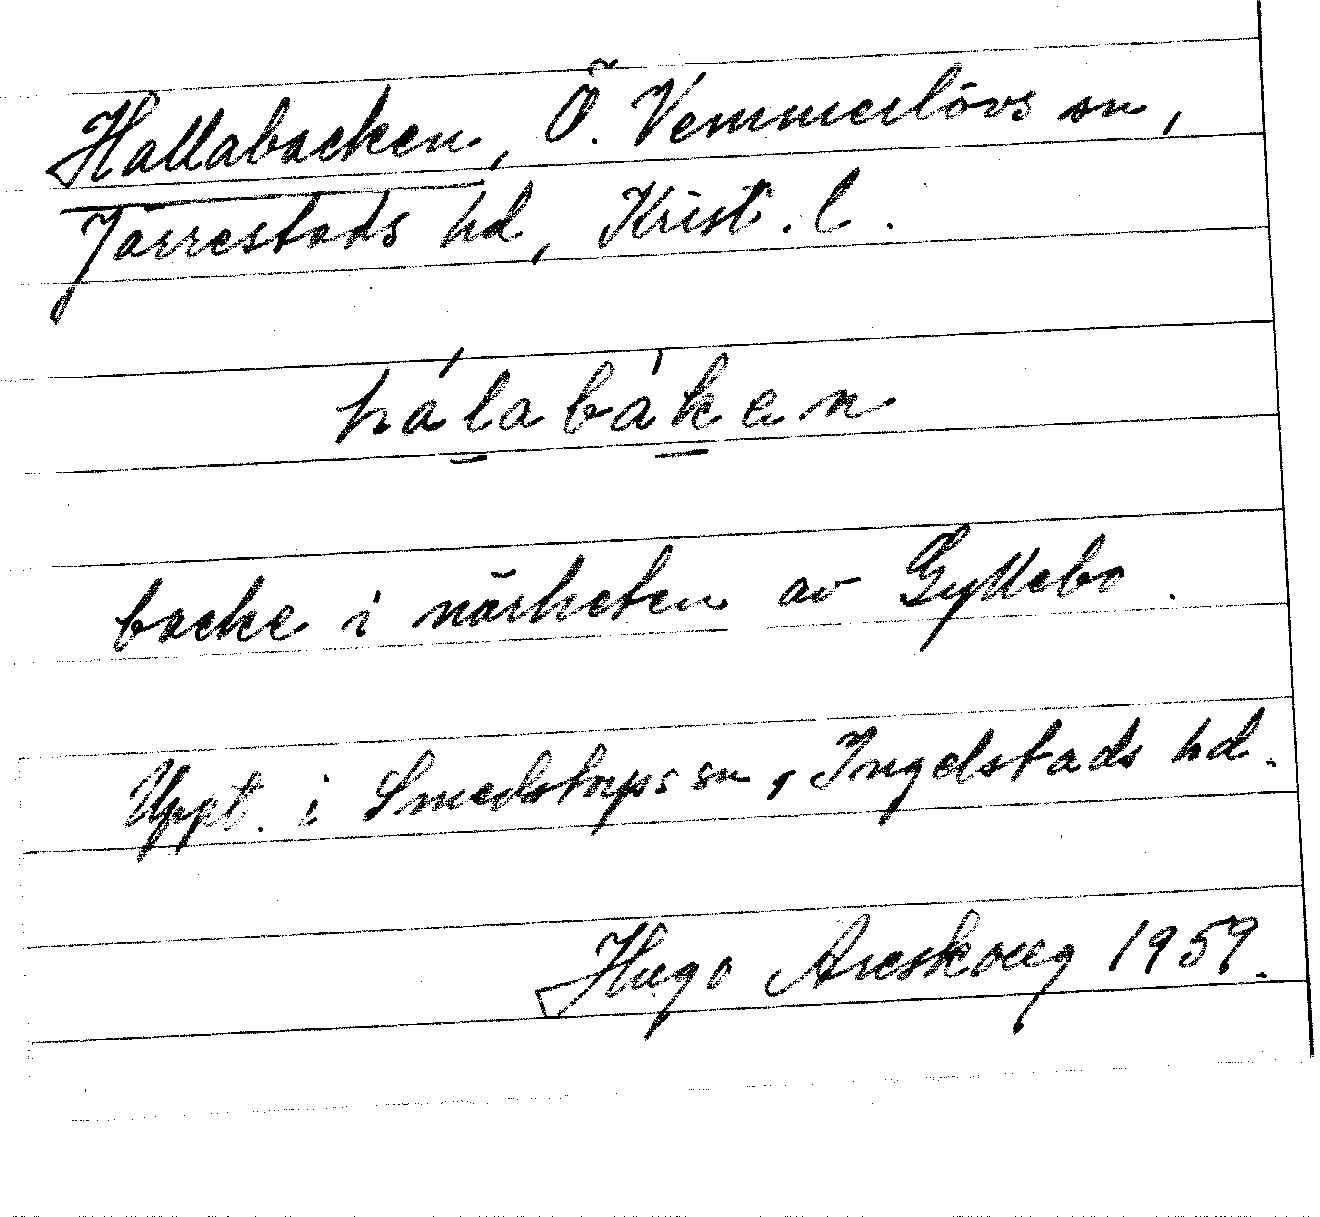 Hallabacken, Ö. Vemmerlövs sn,
Järrestads hd, Krist. l.
hálabàken
backe i närheten av Gyllebo.
Uppt. i Smedstorps sn, Ingelstads hd.
Hugo Areskoug 1959.